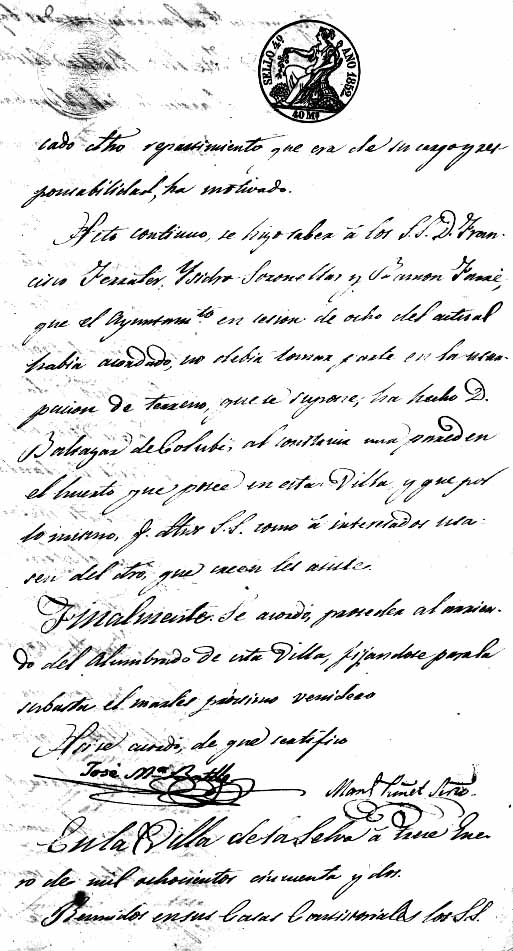 SELLO 4º AÑO 1859
40 Ms
cado dho repartimiento que era de su cargo y res
ponsabilidad, ha motivado.
Acto continuo, se hizo saber á los S.S. D. Fran-
cisco Ferrater, Ysidro Soronellas y Ramon Farré,
que el Ayuntamto en cesion de ocho del actual
habia acordado, no debia tomar parte en la usur-
pacion de terreno, que se supone, ha hecho D.
Baltazar de Colubí, al construir una pared en
el huerto que posee en esta Villa, y que por
lo mismo, dhos S.S. como á interesados usa-
sen del dro, que crean les asiste.
Finalmente. Se acordó, proceder al arrien-
do del Alumbrado de esta Villa, fijandose para la
subasta el martes próximo venidero
Asi se acordó, de que certifico
José Ma Batlle
Manl Srio
En la Villa de la Selva á trece Ene-
ro de mil ochocientos cincuenta y dos.
Reunidos en sus Casas Consistoriales los S.S.